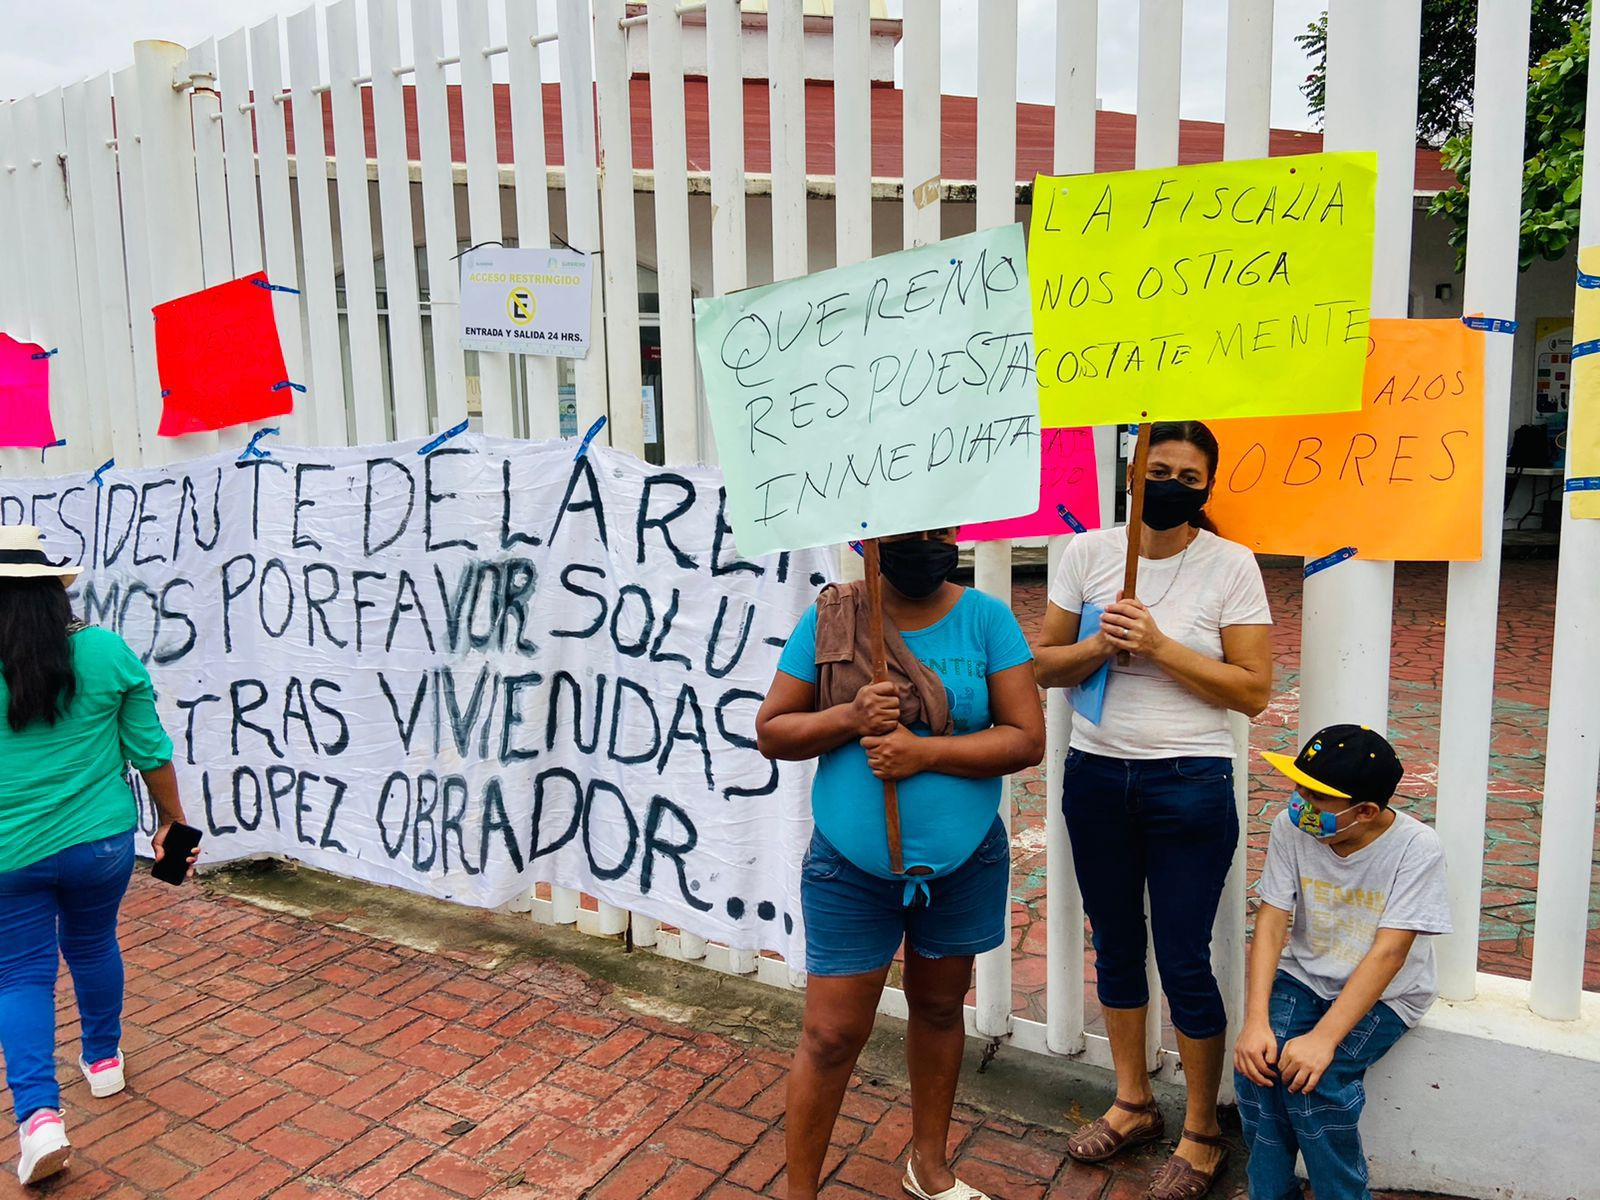 ACCESO RESTRINGIDO
E
ENTRADA Y SALIDA 24 HRS.
RESIDENTE DE LA REP.
EMOS POR FAVOR SOLU-
STRAS VIVIENDAS
LOPEZ OBRADOR...
QUEREMO
RESPUESTA
INMEDIATA
LA FISCALIA
NOS OSTIGA
COSTATEMENTE
ALOS
OBRES